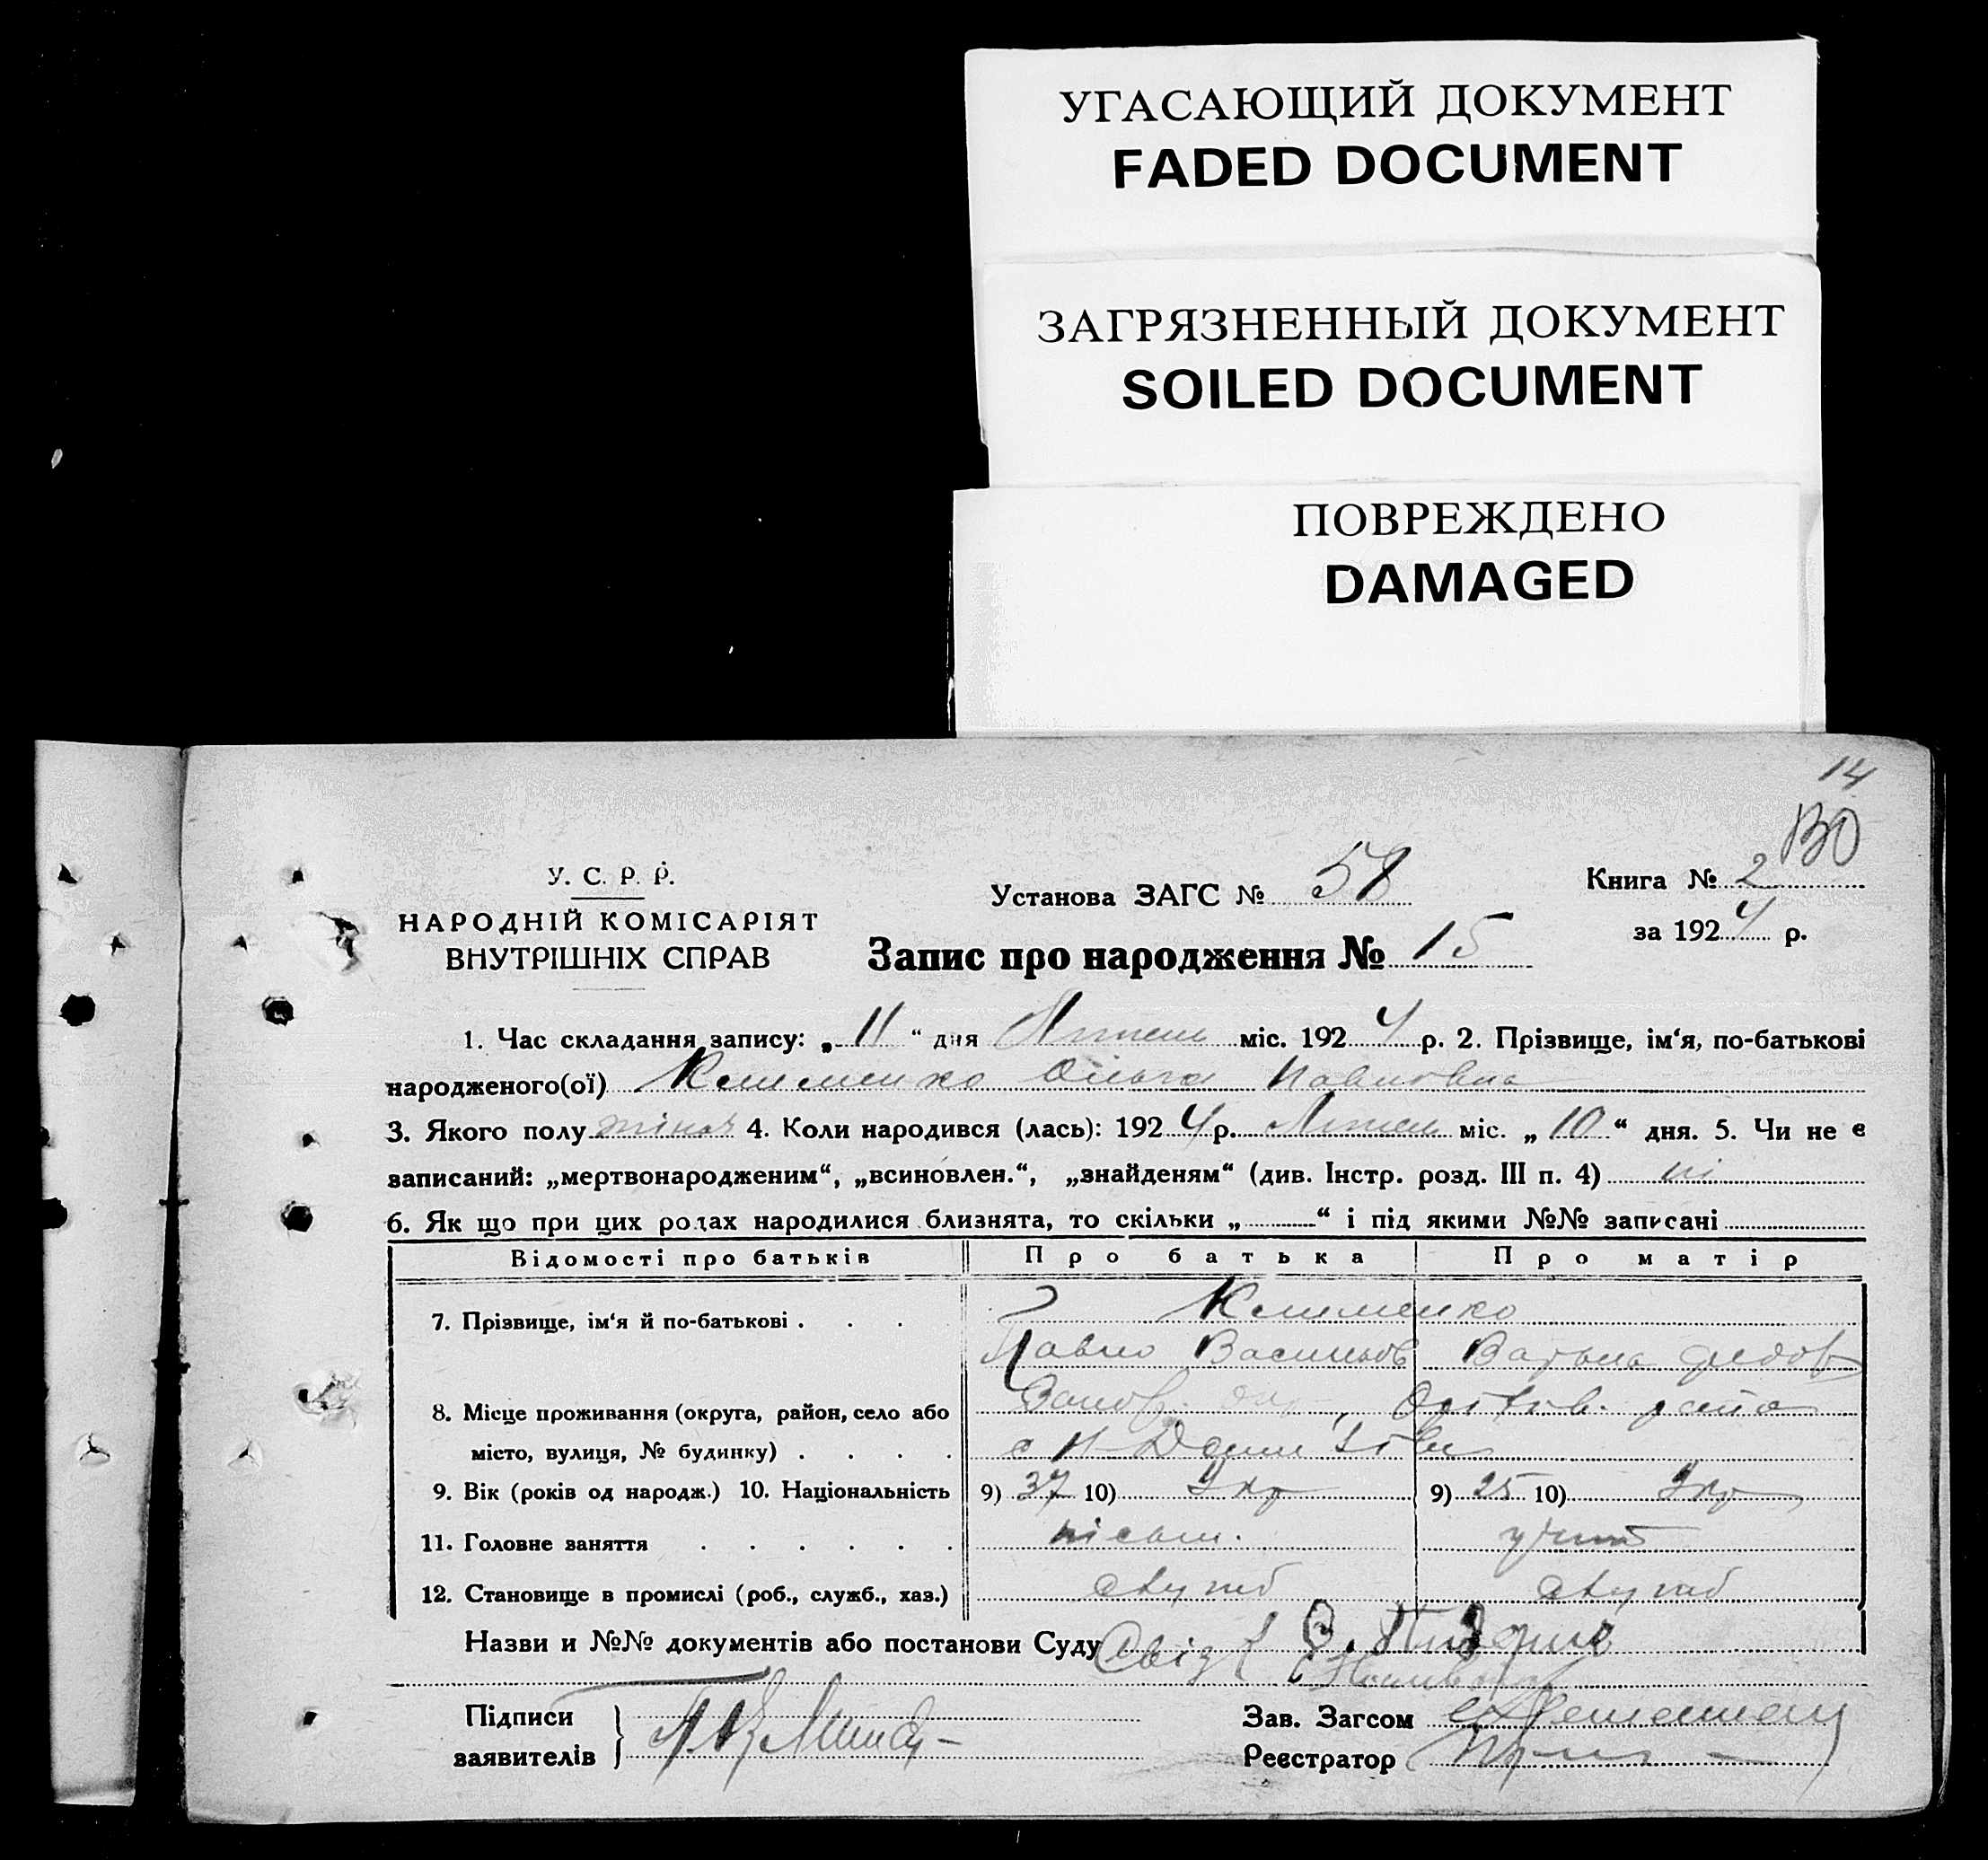 УГАСАЮЩИЙ ДОКУМЕНТ
FADED DOCUMENT
ЗАГРЯЗНЕННЫЙ ДОКУМЕНТ
SOILED DOCUMENT
ПОВРЕЖДЕНО
DAMAGED
14
У. С. Р. Р.
НАРОДНІЙ КОМІСАРІЯТ
ВНУТРІШНІХ СПРАВ
Установа ЗАГС № 58
Книга № 2
за 1924 р.
Запис про народження № 15
1. Час складання запису: „11“ дня Липень міс. 1924 р. 2. Прізвище, ім‘я, по-батькові
народженого(ої) Клименко Ольга Павловна
3. Якого полу жіноч 4. Коли народився (лась): 1924 р. Липень міс. „10“ дня. 5. Чи не є
записаний: „мертвонародженим“, „всиновлен.“, „знайденям“ (див. Інстр. розд. III п. 4) ні
6. Як що при цих родах народилися близнята, то скільки „ “ і під якими №№ записані
Відомості про батьків Про батька Про матір
7. Прізвище, ім‘я й по-батькові . . . Клименко
Павло Васильов Варвара Федов
8. Місце проживання (округа, район, село або
місто, вулиця, № будинку) . . . .
9. Вік (років од народж.) 10. Національність 9) 37 10) Укр 9) 25 10) Укр
11. Головне заняття . . . . . . учит
12. Становище в промислі (роб., служб., хаз.) служб служб
Назви и №№ документів або постанови Суду
Підписи
заявителів
Зав. Загсом
Реєстратор